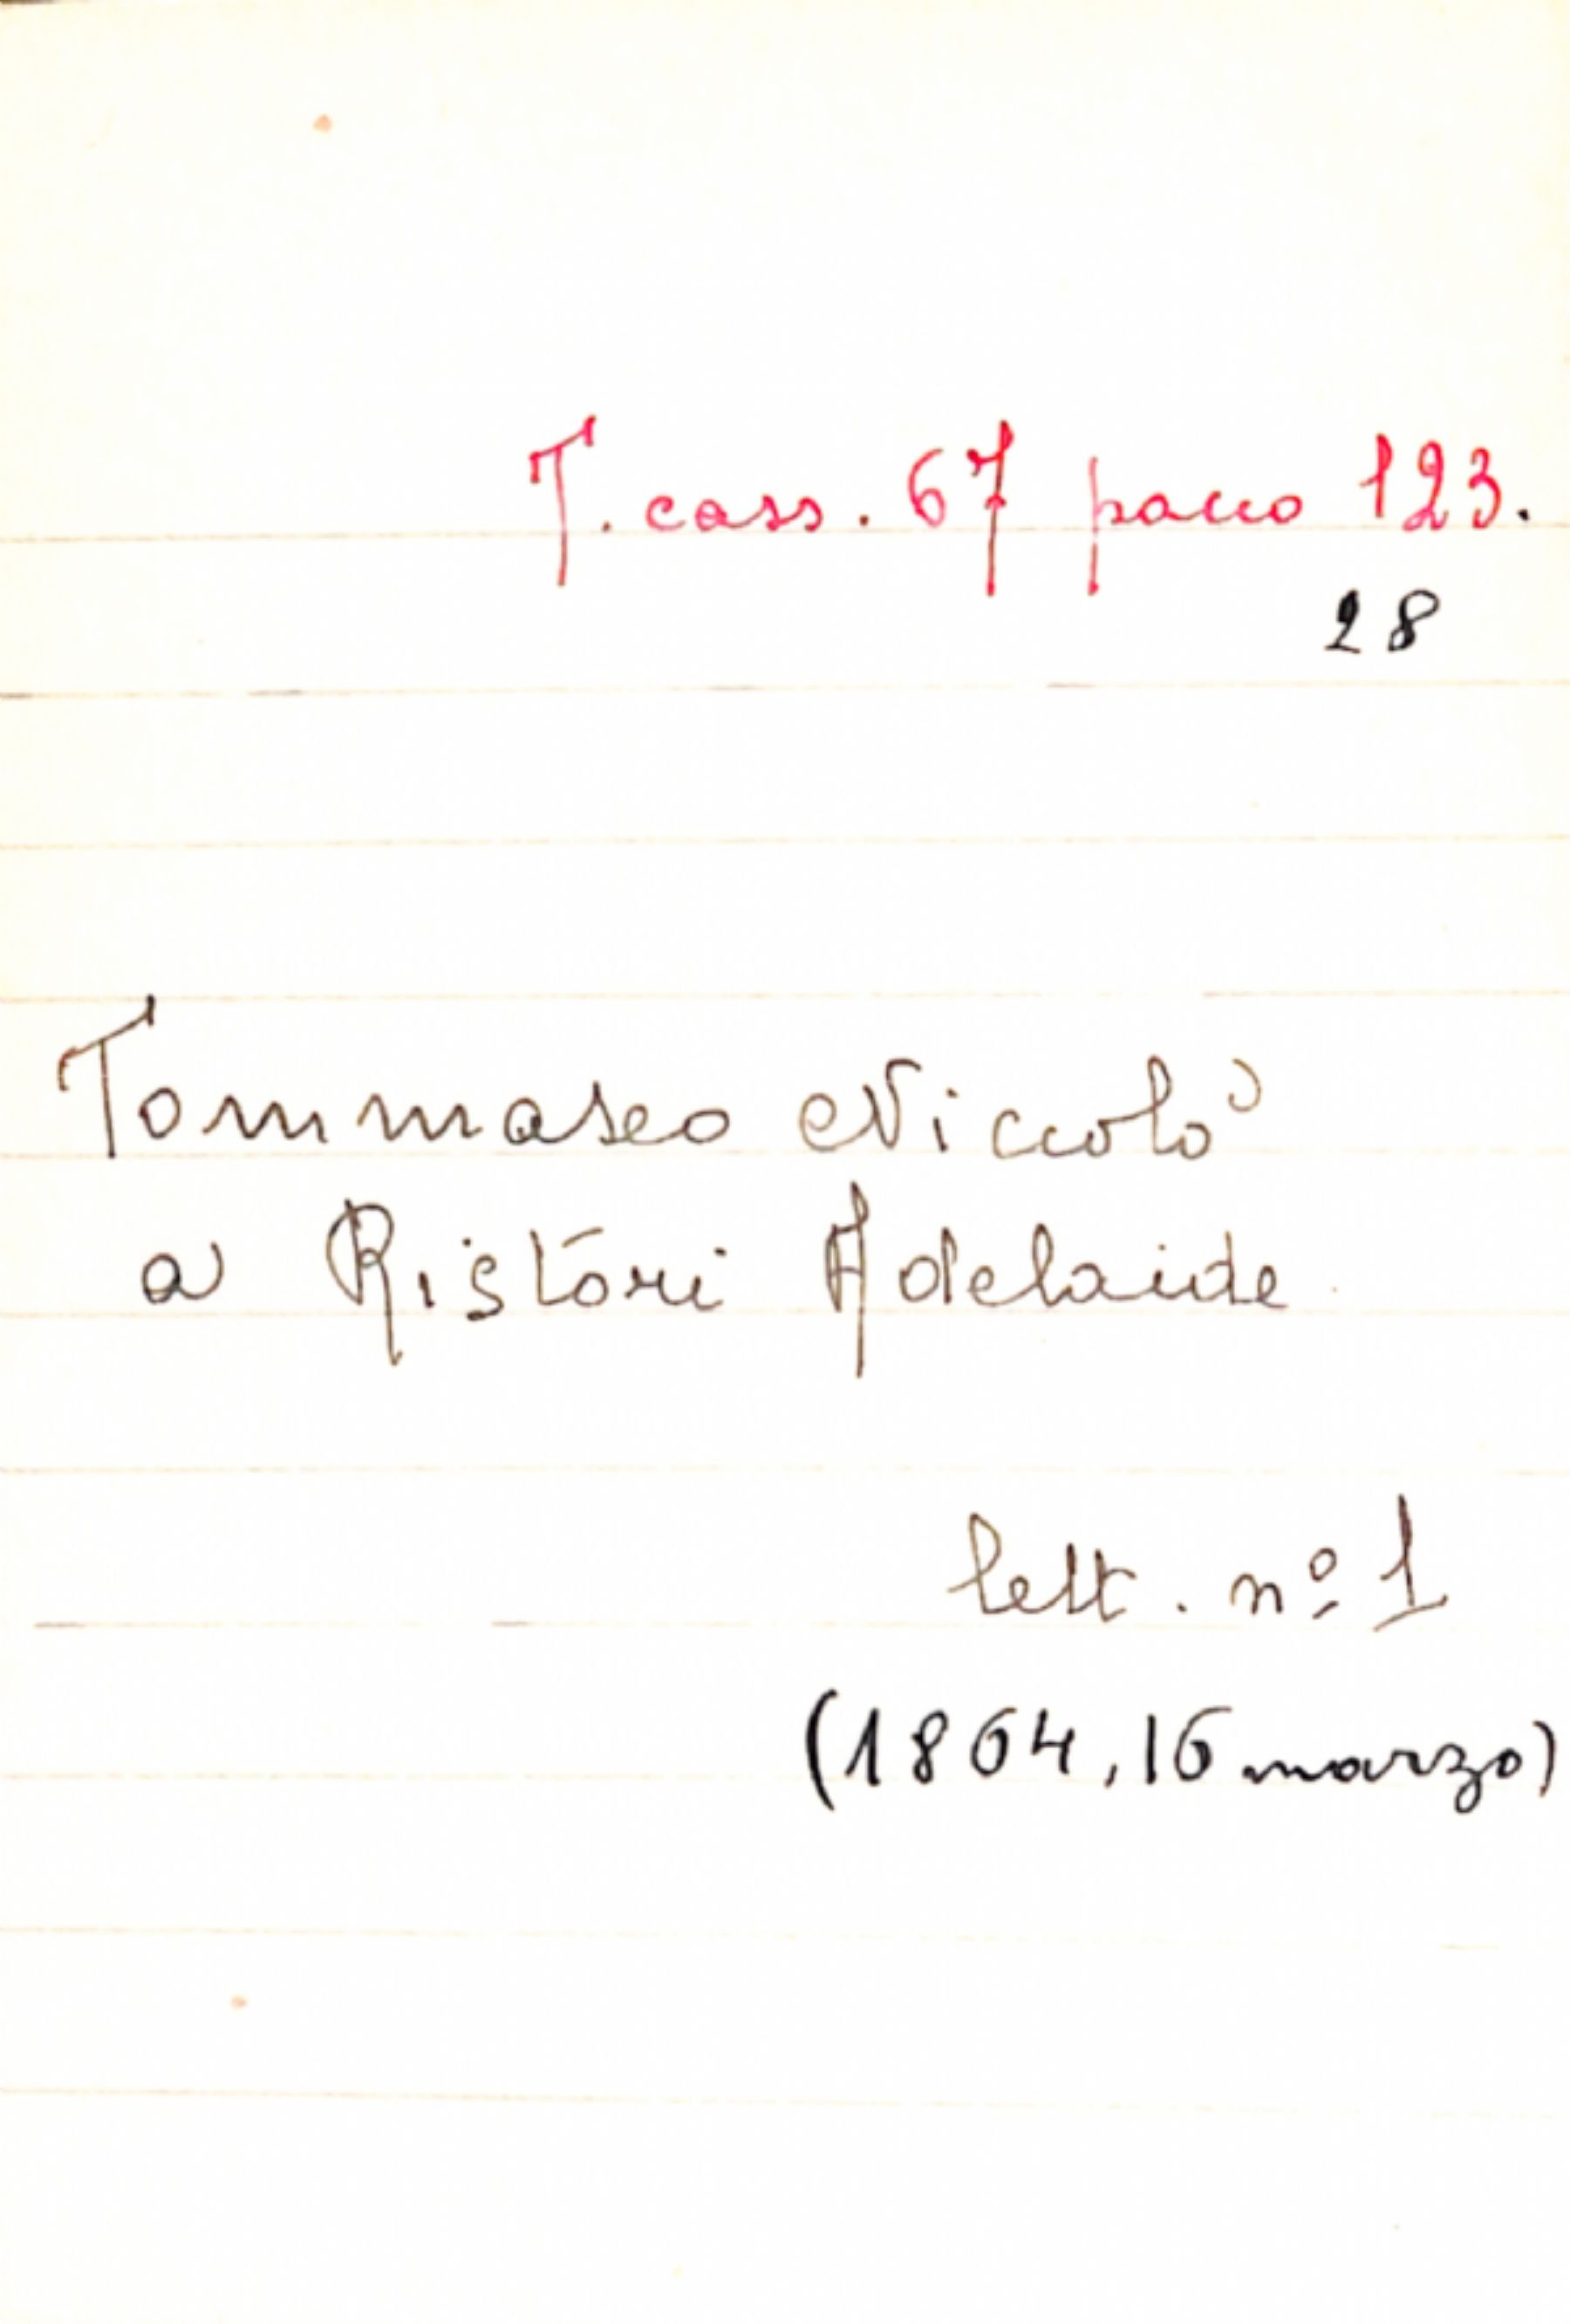 T. cass. 67 pacco 123.
28
Tommaseo Niccolò
a Ristori Adelaide
lett. nº 1
(1864, 16 marzo)